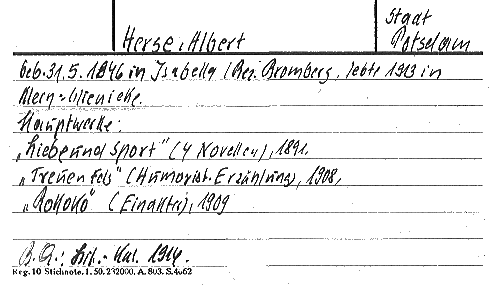 Stadt
Herse, Albert
Potsdam
geb. 31.5.1846 in Isabella (Bez. Bromberg, lebte 1913 in
Klein-Glienicke.
Hauptwerke:
„Liebe und Sport" (4 Novellen), 1891,
„Treuenfels" (Humorist. Erzählung), 1908,
„Rokoko" (Einakter), 1909
B.Q.: Lit.-Kal. 1914.
Reg. 10 Stichnote. 1. 50. 232000. A. 803. S. 4662